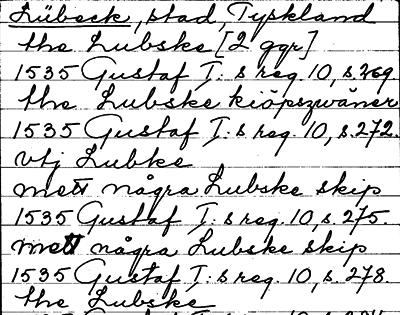 Lübeck, stad, Tyskland
the Lubske [2 ggr]
1535 Gustaf I:s reg. 10, s. 269.
the Lubske kiöpszwäner
1535 Gustaf I:s reg. 10, s. 272.
vtj Lubke
mett några Lubske skip
1535 Gustaf I:s reg. 10, s. 275.
mett några Lubske skip
1535 Gustaf I:s reg. 10, s. 278.
the Lubske